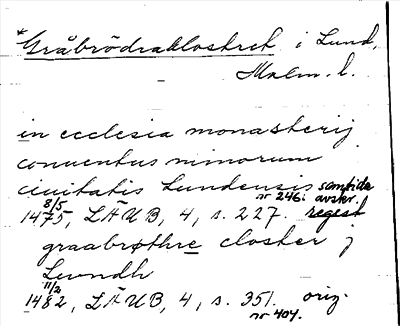 *Gråbrödraklostret i Lund,
Malm. l.
in ecclesia monasterij
conuentus minorum
ciuitatis Lundensis samtida
8/5 nr 246: avskr.
1475, LÄUB, 4, s. 227. regest
graabrøthre closter j
Lwndh
11/2
1482, LÄUB, 4, s. 351. orig.
nr 404.